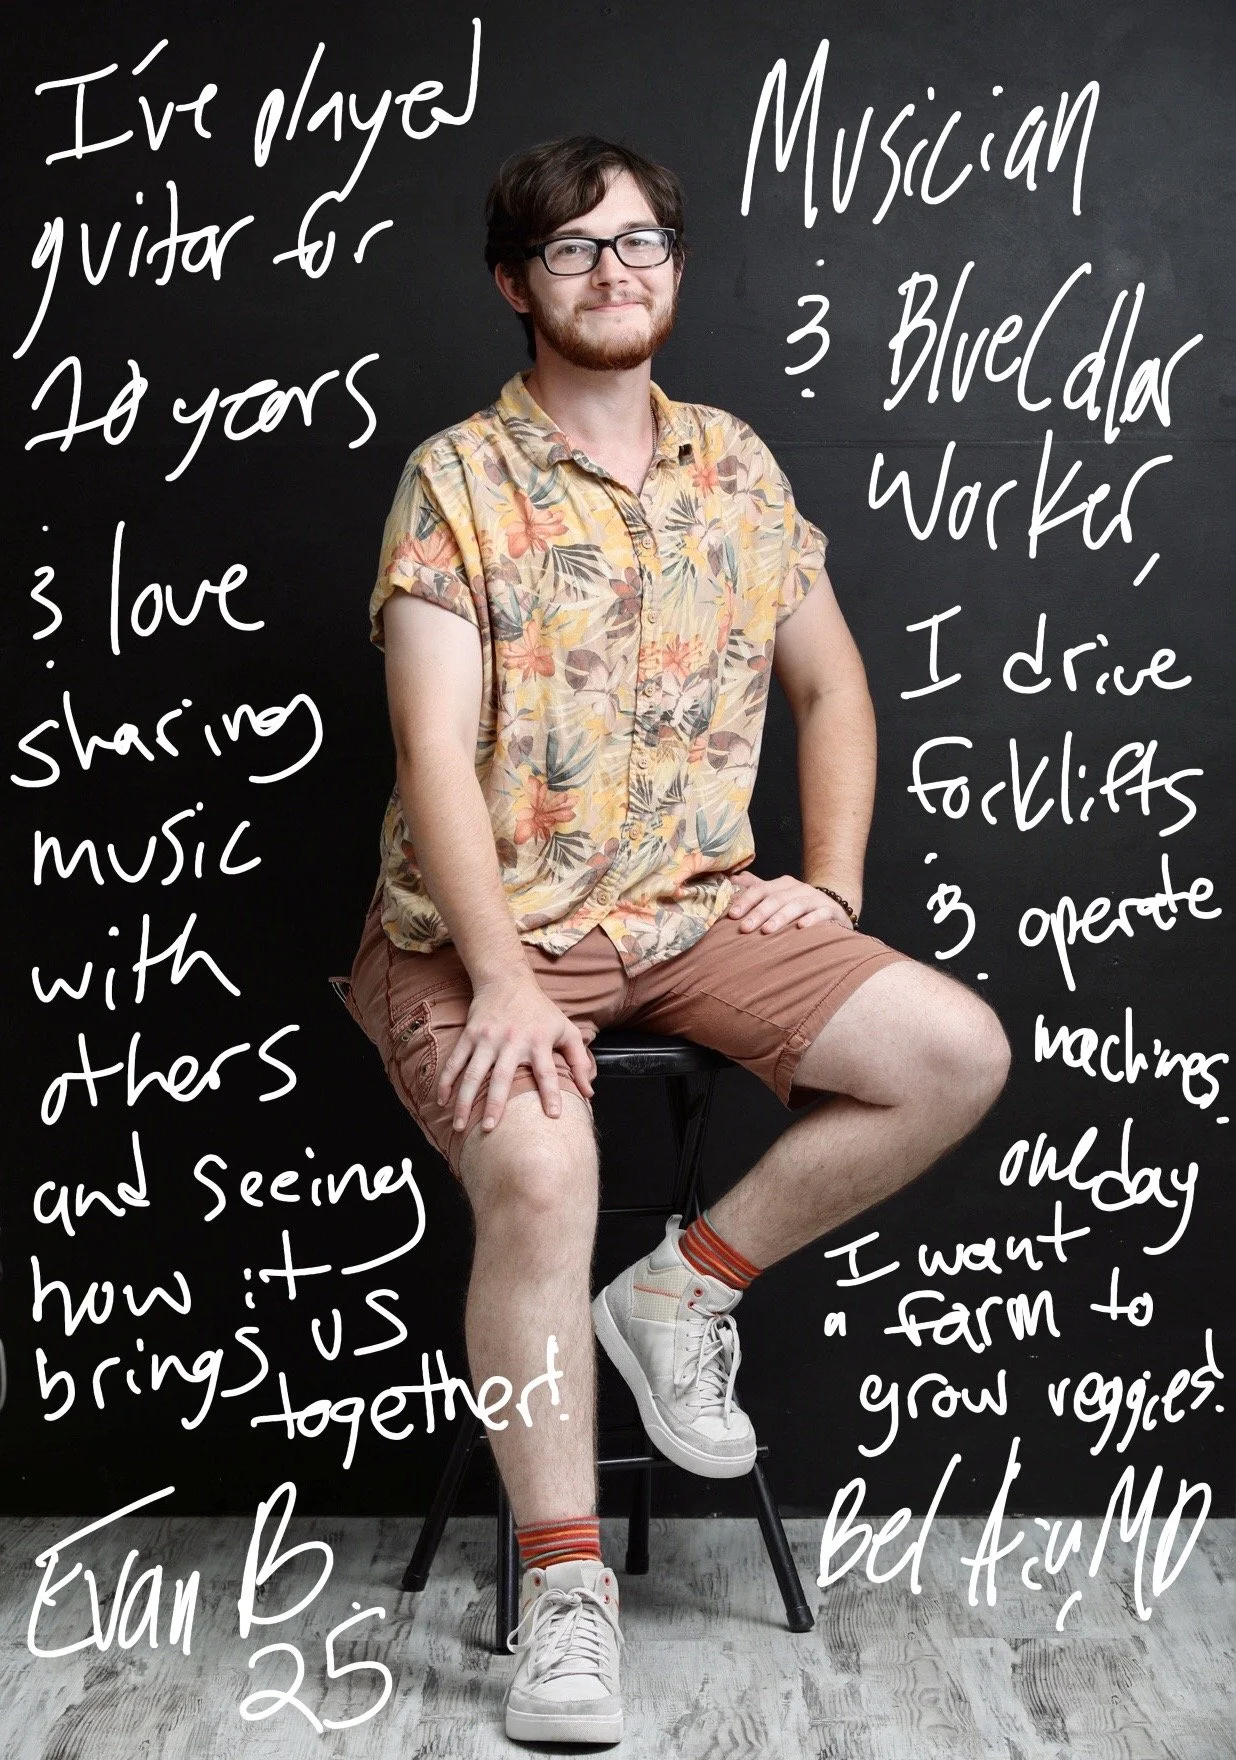 I've played
guitar for
10 years
& love
sharing
music
with
others
and seeing
how it
brings us
together!
Evan B.
25
Musician
& Blue Collar
Worker,
I drive
forklifts
& operate
machines.
one day
I want
a farm to
grow veggies!
Bel Air, MD